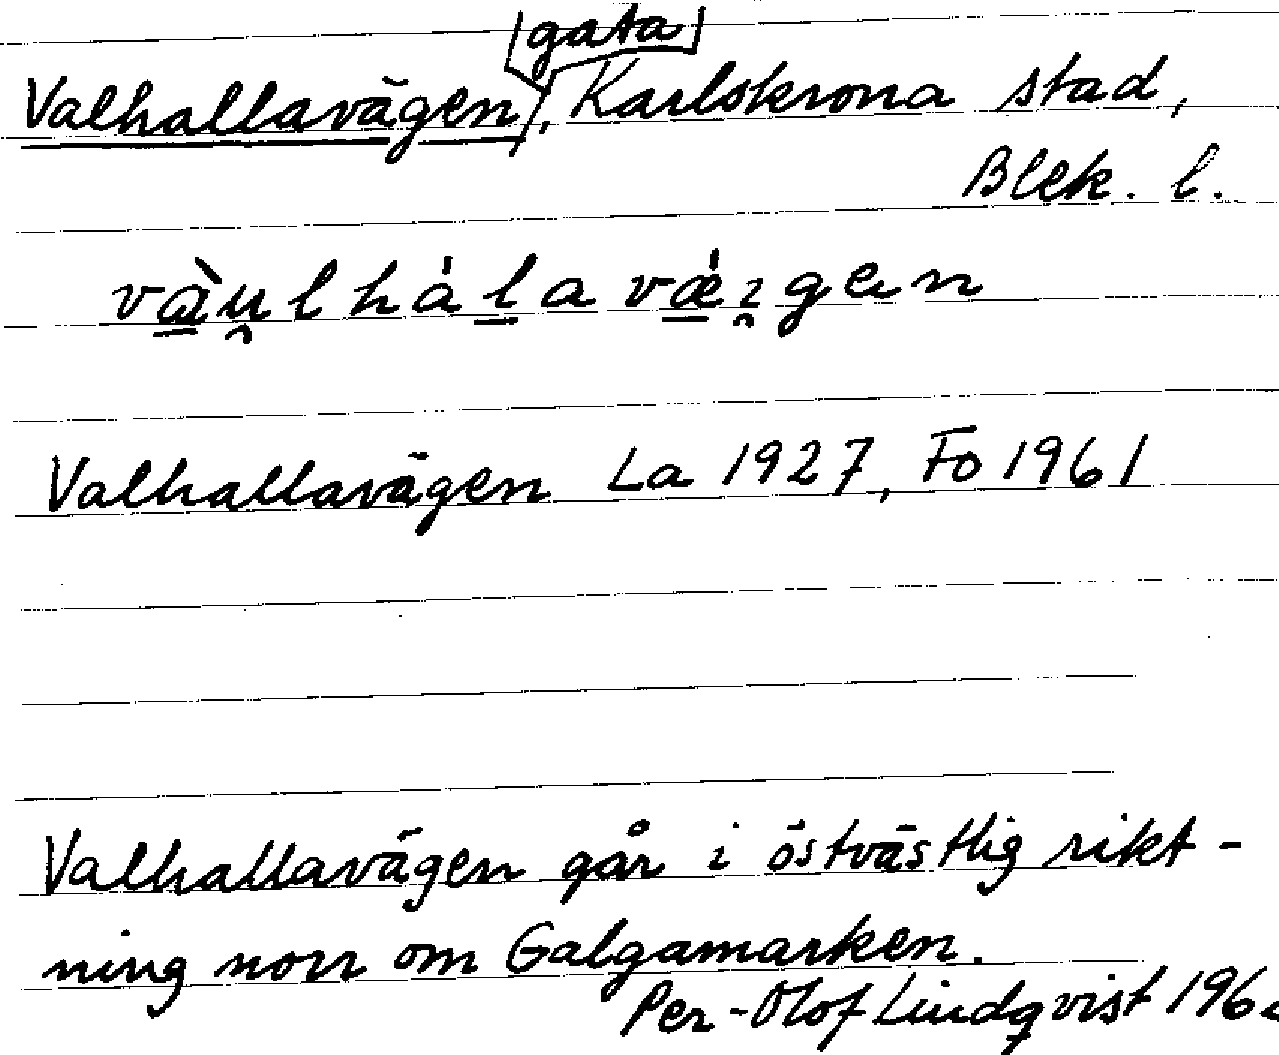 gata
Valhallavägen, Karlskrona stad,
Blek. l.
vàu̯lhálavǽi̯gen
Valhallavägen La 1927, Fo 1961
Valhallavägen går i östvästlig rikt-
ning norr om Galgamarken.
Per-Olof Lindqvist